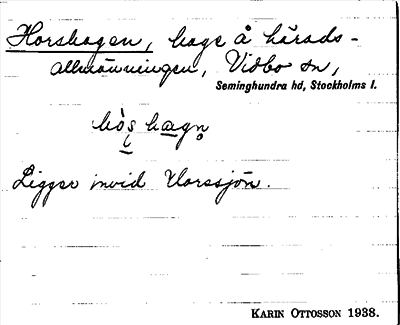 Horshagen, hage å härads-
allmänningen, Vidbo sn,
Seminghundra hd, Stockholms l.
hò̱s hægn̥
Ligger invid Horssjön.
KARIN OTTOSSON 1938.